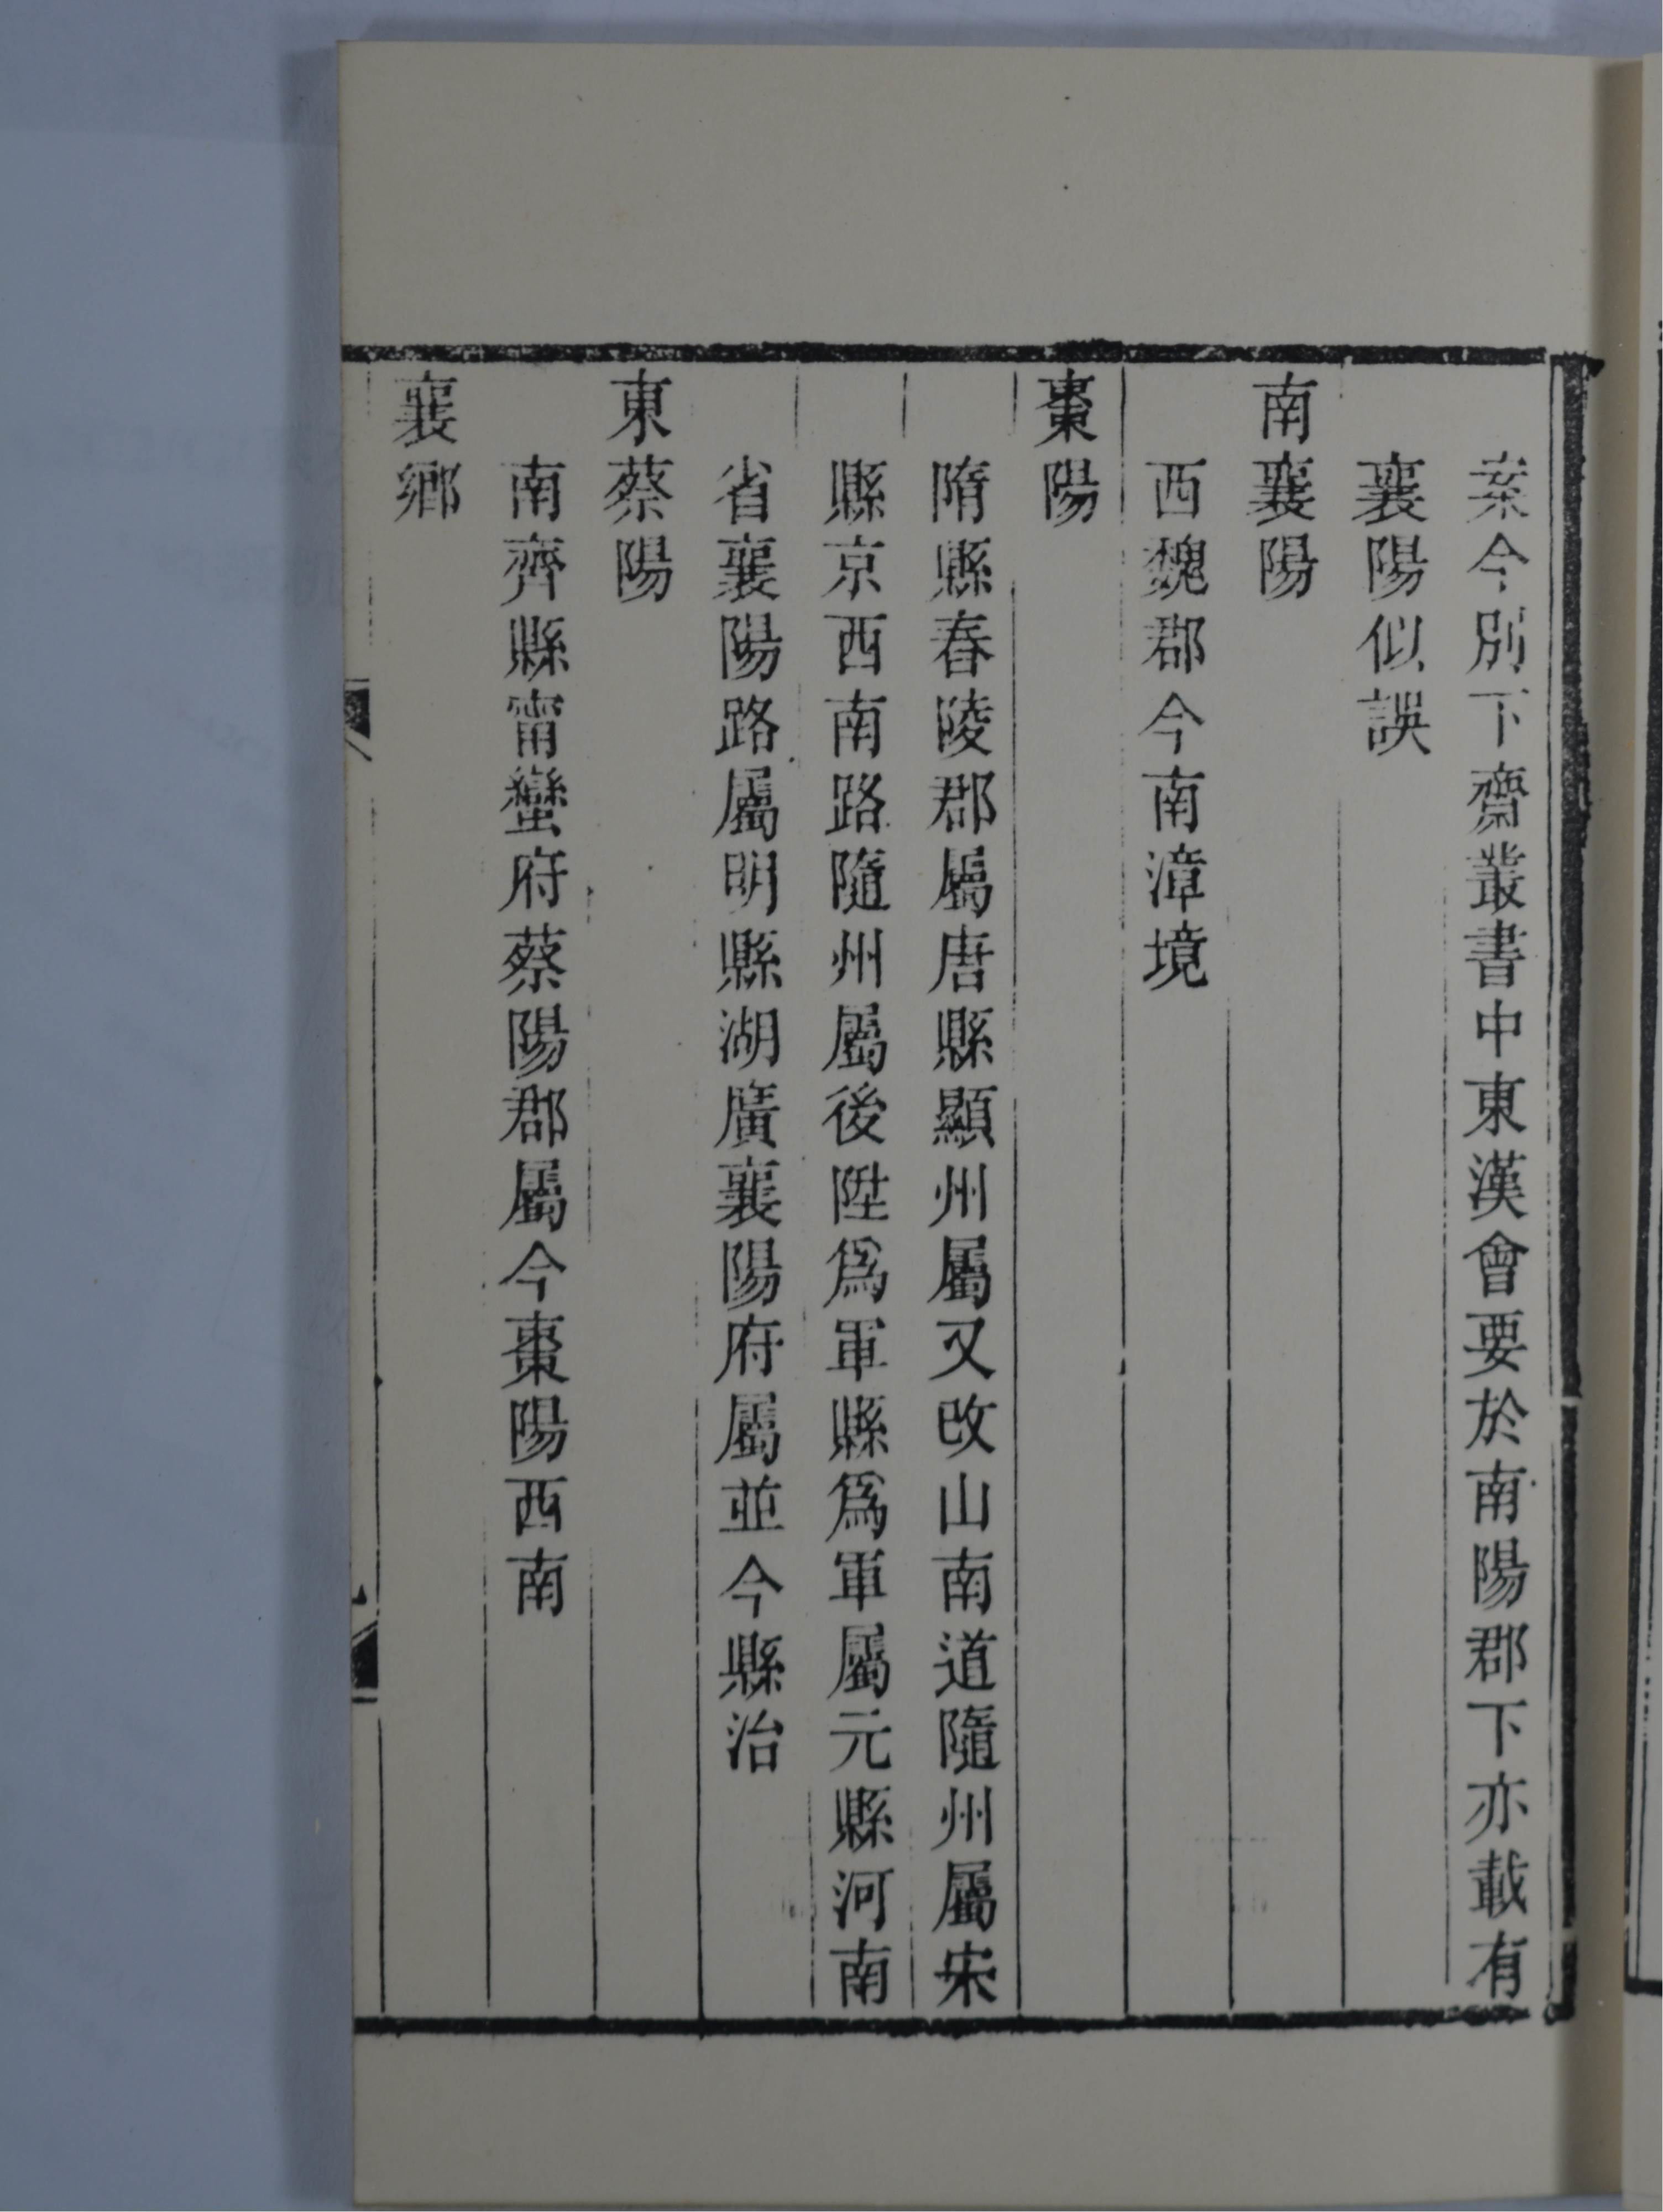 案今別下齋叢書中東漢會要於南陽郡下亦載有
襄陽似誤
南襄陽
西魏郡今南漳境
棗陽
隋縣舂陵郡屬唐縣顯州屬又改山南道隨州屬宋
縣京西南路隨州屬後陞爲軍縣爲軍屬元縣河南
省襄陽路屬明縣湖廣襄陽府屬並今縣治
東蔡陽
南齊縣甯蠻府蔡陽郡屬今棗陽西南
襄鄉